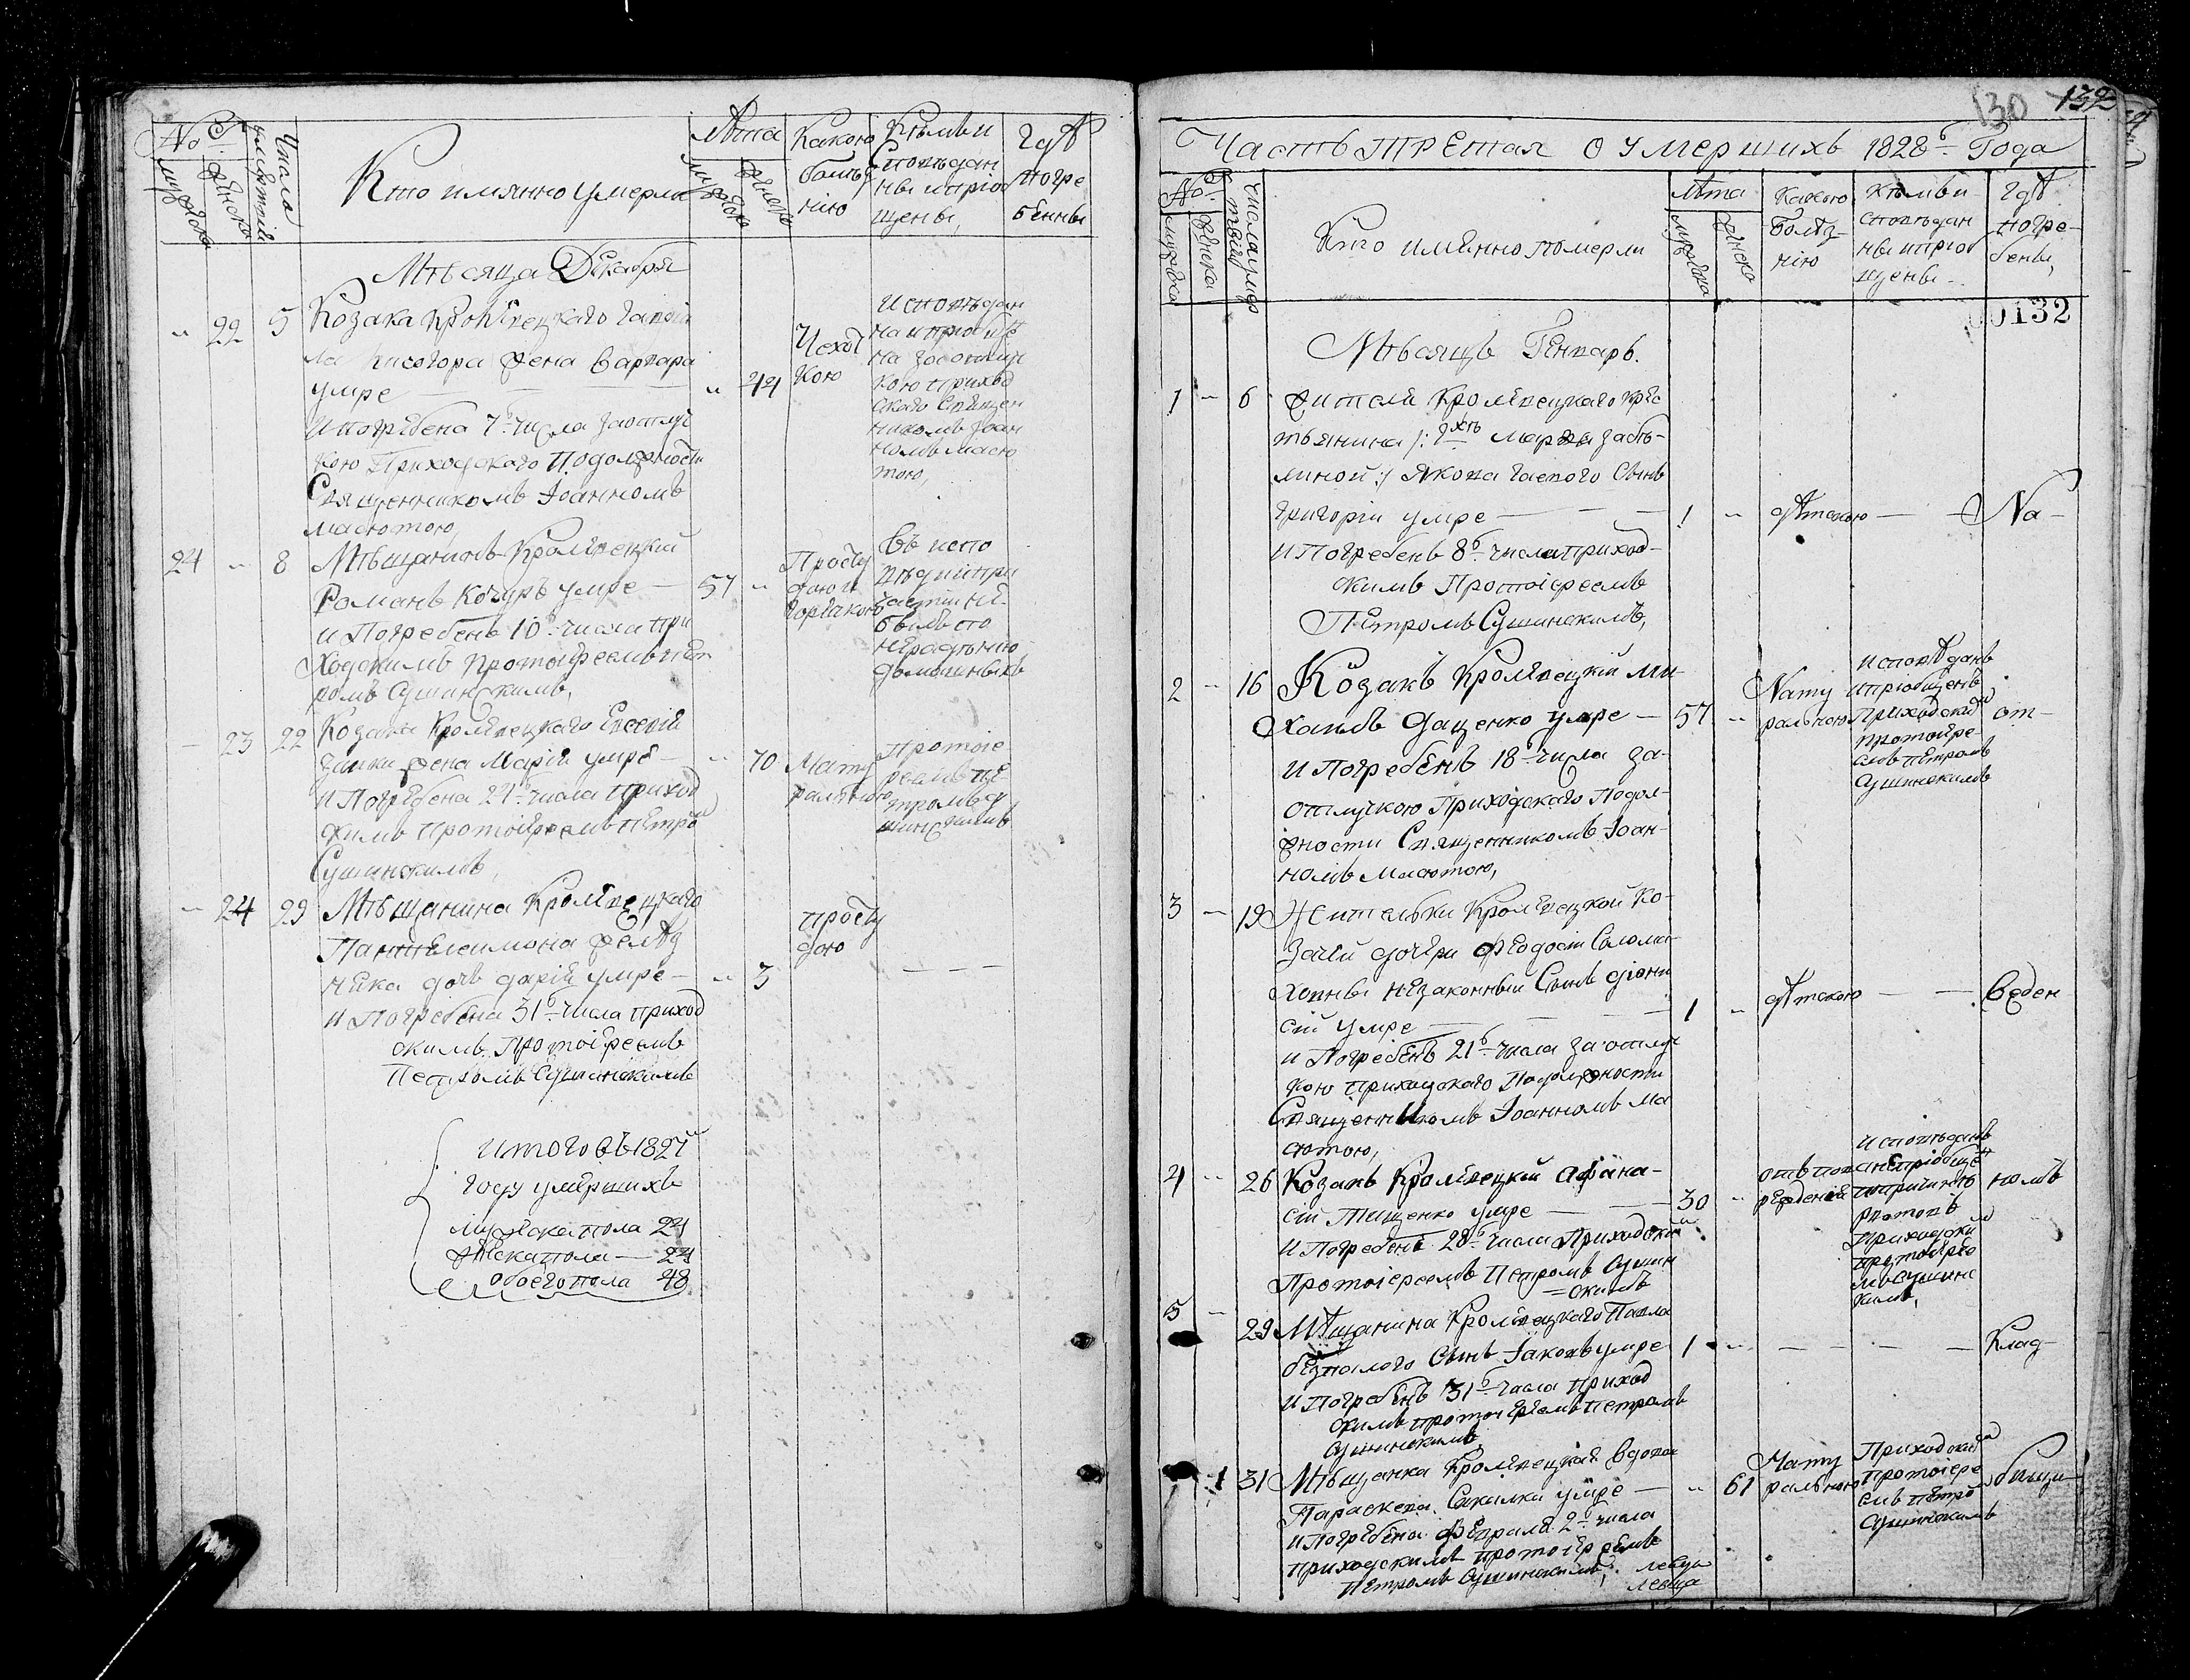 No
мужска
женска
Числа
Кто имянно умерли
Лѣта
мужска
женска
Какою
болѣз
нію
Кѣмъ и
споведан
ны и пріоб
щены,
гдѣ
Погре
бенны
Мѣсяца Декабря
22 5 Козака Кролѣвецкаго
жена Варвара
умре 44
И погребена 7 числа заотлуч
кою Приходского Подолжности
Священникомъ Іоанномъ
Масютою,
Чехот
кою
Исповѣдан
на и пріобще
на заотлуч
кою приход
скаго Священ
никомъ Іоан
номъ Масю
тою,
24 8 Мѣщанинъ Кролѣвецкій
Романъ Кочуръ умре 57
и Погребенъ 10 числа при
ходскимъ Протоіереемъ Пет
ромъ Сушинскимъ,
Просту
дою и
горячкою
Въ испо
вѣди и при
частіи не
былъ по
нерадѣнію
домашныхъ
23 22 Козака Кролѣвецкаго Евсевія
жена Марія умре 70
и Погребена 24 числа приход
скимъ Протоіереемъ Петромъ
Сушинскимъ,
Нату
ральною
Протоіе
реемъ Пе
тромъ Су
шинскимъ
24 29 Мѣщанина Кролѣвецкаго
Пантелеимона
дочь Дарія умре 3
и Погребена 31 числа приход
скимъ Протоіереемъ
Петромъ Сушинскимъ
просту
дою
итого въ 1827м
году умершихъ
мужска пола 24
женска пола 24
обоего пола 48
130 132
Часть третая о умершихъ 1828 Года
No
мужска
женска
Кто имянно померли
Лѣта
мужска
женска
Какою
болѣз
нію
Кѣмъ и
споведан
ны и пріоб
щены
гдѣ
погре
бены,
00132
Мѣсяцъ Генварь.
1 6 жителя Кролѣвецкаго кре
стьянина
Якова Сынъ
Григорій умре 1 дѣтскою На
и Погребенъ 8 числа приход
скимъ Протоіереемъ
Петромъ Сушинскимъ,
2 16 Козакъ Кролѣвецкій Ми
хаилъ Даценко умре 57
и Погребенъ 18 числа за
отлучкою Приходского Подол
жности Священникомъ Іоан
номъ Масютою,
Нату
ральною
исповѣданъ
и пріобщенъ
Приходским
протоіере
емъ Петромъ
Сушинскимъ
от
3 19 Жительки Кролѣвецкой ко
зачей дочери Феодосіи Солома
ховны незаконный Сынъ Діони
сій умре 1 дѣтскою веден
и Погребенъ 21 числа заотлуч
кою приходского Подолжности
Священникомъ Іоанномъ Ма
сютою,
4 26 Козакъ Кролѣвецкій Афана
сій Тищенко умре 30
и Погребенъ 28 числа Приходским
Протоіереемъ Петромъ Сушин
скимъ
номъ
5 29 Мѣщанина Кролѣвецкаго Павла
Безпалого Сынъ Іаковъ умре 1 Клад
и Погребенъ 31 числа приход
скимъ протоіереемъ Петромъ
Сушинскимъ
1 31 Мѣщанка Кролѣвецкая вдова
Параскева умре 61
и Погребена Февраля 2 числа
приходскимъ протоіереемъ
Петромъ Сушинскимъ,
Нату
ральною
Приходским
протоіере
емъ Петром
Сушинскимъ
бищи